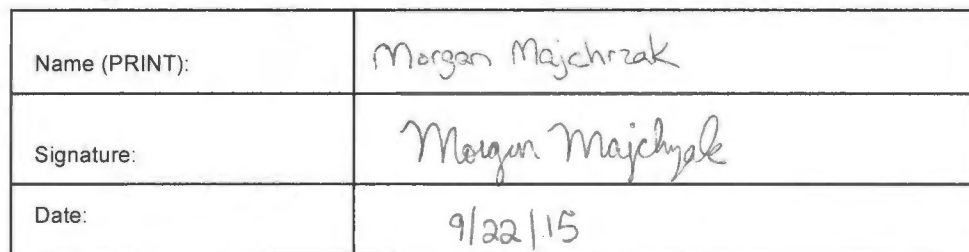 Name (PRINT): Morgan Majchrzak
Signature: Morgan Majchrzak
Date: 9/22/15